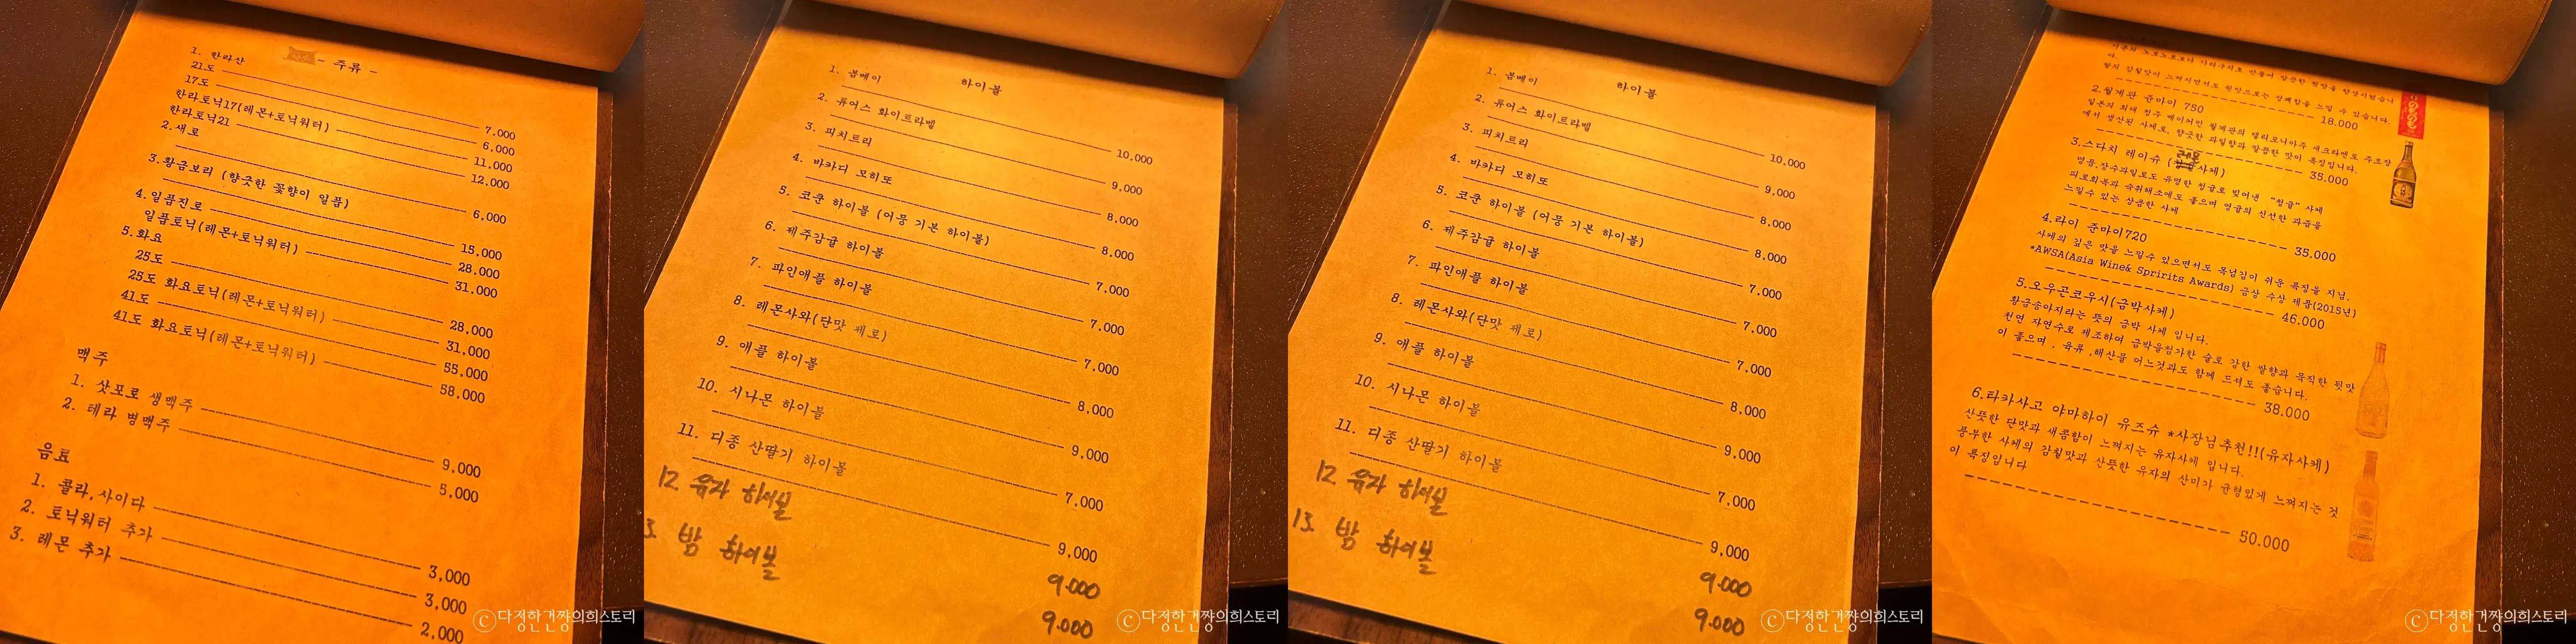 - 주류 -
1. 한라산
21도 7.000
17도 6.000
한라토닉17(레몬+토닉워터) 11,000
한라토닉21 12,000
2.새로 6.000
3.황금보리 (향긋한 꽃향이 일품) 15.000
4.일품진로 28.000
일품토닉(레몬+토닉워터) 31.000
5.화요
25도 28.000
25도 화요토닉(레몬+토닉워터) 31,000
41도 55,000
41도 화요토닉(레몬+토닉워터) 58,000
맥주
1. 삿포로 생맥주 9,000
2. 테라 병맥주 5,000
음료
1. 콜라,사이다 3,000
2. 토닉워터 추가 3,000
3. 레몬 추가 2,000
ⓒ다정한건짱의희스토리
하이볼
1. 봄베이 10,000
2. 듀어스 화이트라벨 9,000
3. 피치트리 8,000
4. 바카디 모히또 8,000
5. 코쿤 하이볼 (어뭉 기본 하이볼) 7,000
6. 제주감귤 하이볼 7,000
7. 파인애플 하이볼 7,000
8. 레몬사와(단맛 제로) 8,000
9. 애플 하이볼 9,000
10. 시나몬 하이볼 7,000
11. 디종 산딸기 하이볼 9,000
12. 유자 하이볼 9.000
3. 밤 하이볼 9.000
ⓒ다정한건짱의희스토리
하이볼
1. 봄베이 10,000
2. 듀어스 화이트라벨 9,000
3. 피치트리 8,000
4. 바카디 모히또 8,000
5. 코쿤 하이볼 (어뭉 기본 하이볼) 7,000
6. 제주감귤 하이볼 7,000
7. 파인애플 하이볼 7,000
8. 레몬사와(단맛 제로) 8,000
9. 애플 하이볼 9,000
10. 시나몬 하이볼 7,000
11. 디종 산딸기 하이볼 9,000
12. 유자 하이볼 9.000
13. 밤 하이볼 9.000
ⓒ다정한건짱의희스토리
향의 감칠맛이 느껴지면서도 뒷맛으로는 상쾌함을 느낄 수 있습니다.
18.000
2.월계관 준마이 750
일본의 최대 청주 메이커인 월계관의 캘리포니아주 새크라멘토 주조장
에서 생산된 사케로, 향긋한 과일향과 깔끔한 맛이 특징입니다.
35.000
3.스다치 레이슈 (레몬사케)
명품,장수과일로도 유명한 청귤로 빚어낸 "청귤" 사케
피로회복과 숙취해소에도 좋으며 영귤의 신선한 과즙을
느낄수 있는 상큼한 사케
35.000
4.라이 준마이720
사케의 깊은 맛을 느낄수 있으면서도 목넘김이 쉬운 특징을 지님.
*AWSA(Asia Wine& Spririts Awards) 금상 수상 제품(2015년)
46.000
5.오우곤코우시(금박사케)
황금송아지라는 뜻의 금박 사케 입니다.
천연 자연수로 제조하여 금박을첨가한 술로 강한 쌀향과 묵직한 뒷맛
이 좋으며 , 육류 ,해산물 어느것과도 함께 드셔도 좋습니다.
38.000
6.타카사고 야마하이 유즈슈 *사장님추천!!(유자사케)
산뜻한 단맛과 새콤함이 느껴지는 유자사케 입니다.
풍부한 사케의 감칠맛과 산뜻한 유자의 산미가 균형있게 느껴지는 것
이 특징입니다
50.000
ⓒ다정한건짱의희스토리